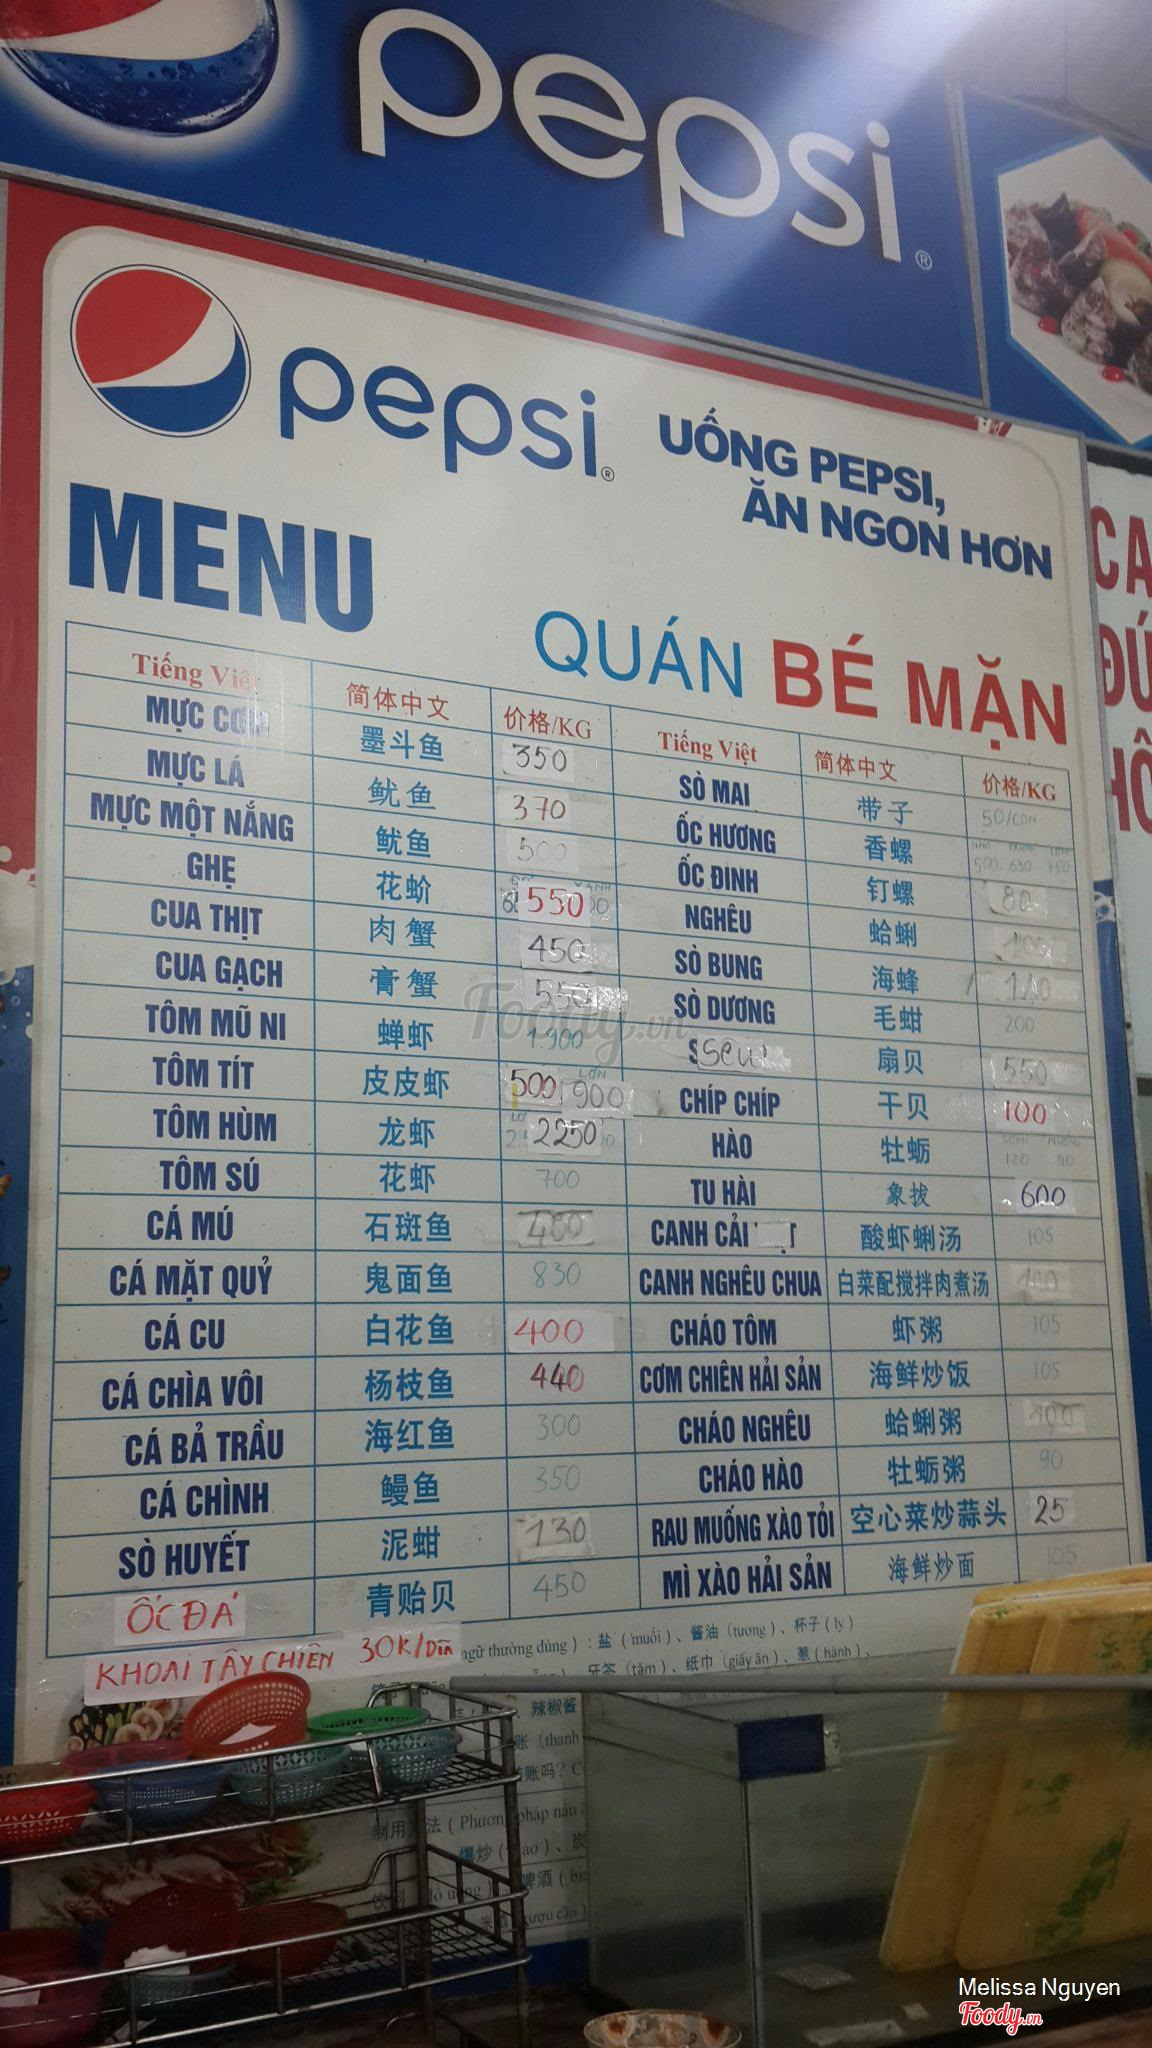 pepsi®
pepsi®
UỐNG PEPSI,
ĂN NGON HƠN
MENU
QUÁN BÉ MẶN
Tiếng Việt 简体中文 价格/KG
MỰC CƠM 墨斗鱼 350
MỰC LÁ 鱿鱼 370
MỰC MỘT NẮNG 鱿鱼 500
GHẸ 花蚧 550
CUA THỊT 肉蟹 450
CUA GẠCH 膏蟹 550
TÔM MŨ NI 蝉虾 1.900
TÔM TÍT 皮皮虾 500 LỚN 900
TÔM HÙM 龙虾 2250
TÔM SÚ 花虾 700
CÁ MÚ 石斑鱼 480
CÁ MẶT QUỶ 鬼面鱼 830
CÁ CU 白花鱼 400
CÁ CHÌA VÔI 杨枝鱼 440
CÁ BẢ TRẦU 海红鱼 300
CÁ CHÌNH 鳗鱼 350
SÒ HUYẾT 泥蚶 130
ỐC ĐÁ 青贻贝 450
KHOAI TÂY CHIÊN 30K/Dĩa
Tiếng Việt 简体中文 价格/KG
SÒ MAI 带子 50/CON
ỐC HƯƠNG 香螺 NHỎ LỚN 500. 630 750
ỐC ĐINH 钉螺 80
NGHÊU 蛤蜊
SÒ BUNG 海蜂 140
SÒ DƯƠNG 毛蚶 200
扇贝 550
CHÍP CHÍP 干贝 100
HÀO 牡蛎 120 90
TU HÀI 象拔 600
CANH CẢI 酸虾蜊汤 105
CANH NGHÊU CHUA 白菜配搅拌肉煮汤 100
CHÁO TÔM 虾粥 105
CƠM CHIÊN HẢI SẢN 海鲜炒饭 105
CHÁO NGHÊU 蛤蜊粥 100
CHÁO HÀO 牡蛎粥 90
RAU MUỐNG XÀO TỎI 空心菜炒蒜头 25
MÌ XÀO HẢI SẢN 海鲜炒面 105
ngữ thường dùng) : 盐 (muối)、酱油 (tương)、杯子 (ly)
牙签 (tăm)、纸巾 (giấy ăn)、葱 (hành)、
辣椒酱
账 (thanh
账吗? C
制用方法 ( Phương pháp nấu
爆炒 (xào)、炭
啤酒 (bi
米酒 (rượu cần)
CA
ĐÚ
Foody.vn
Melissa Nguyen
Foody.vn